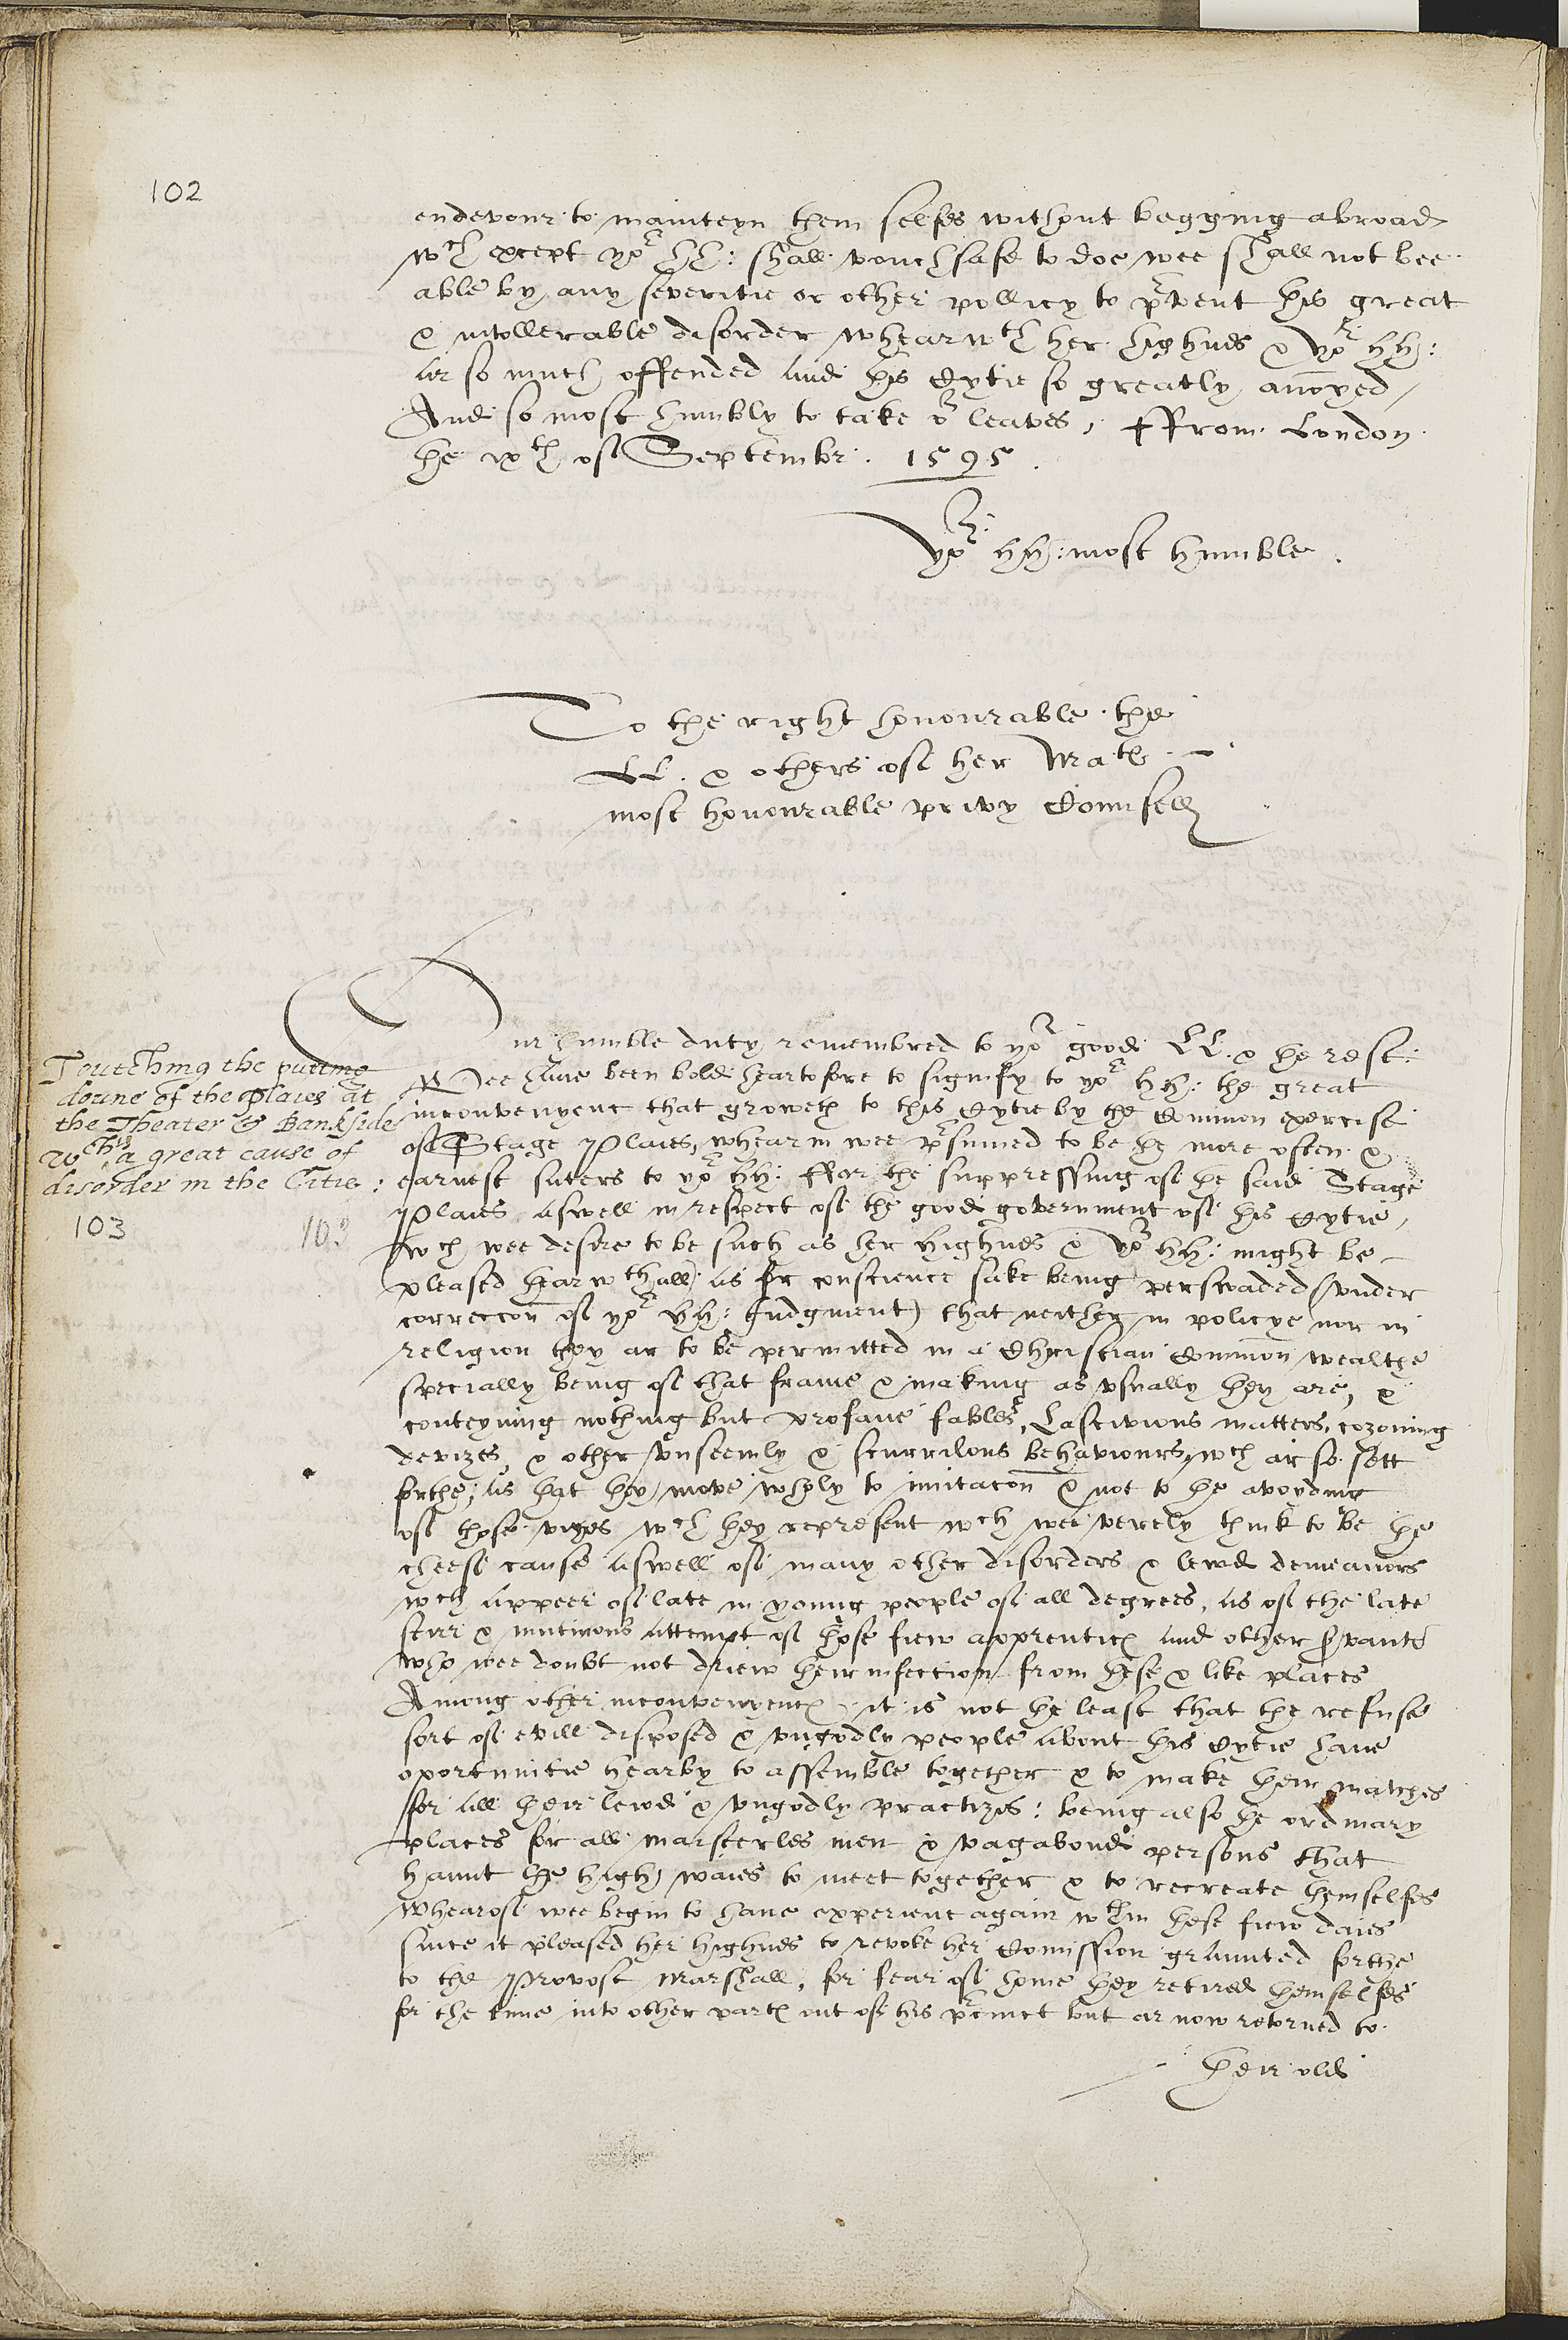 102
endevour to mainteyn them selfes without begging abroad
wch except yor LL: shall vouchsafe to doe wee shall not bee
able by any severitie or other pollicy to prvent this great
& intollerable disorder whearwth her highnes & yor hh:
ar so much offended and this Cytie so greatly anoyed
And so most humbly to take or leaves, ffrom London
the ixth of Septembr. 1595.
Yor hh: most humble.
To the right honourable the
LL. & others of her Matr
most honourable privy Counsell
Our humble duty remembred to yor good LL. & the rest.
Wee have been bold heartofore to signify to yor hh: the great
inconvenyenc that groweth to this Cytie by the Common exercise
of Stage Plaies, whearin wee prsumed to be the more often &
earnest suters to yor hh: ffor the suppressing of the said Stage
Plaies aswell in respect of the good government of this Cytie,
(wch wee desire to be such as her highnes & yor hh: might be
pleased thearwthall) as for conscience sake being perswaded (vnder
correccon of yor hh: Iudgment) that neither in policye nor in
religion they ar to be permitted in a Christian Common wealthe
specially being of that frame & making as vsually they are, &
conteyning nothing but profane fables, Lascivious matters, cozoning
devizes, & other vnseemly & scurrilous behaviours, wch ar so sett
forthe; as that they move wholy to imitacon & not to the avoyding
of those vyces wch they represent wch wee verely think to be the
cheefe cause aswell of many other disorders & lewd demeanors
wch appeer of late in young people of all degrees, as of the late
stirr & mutinous attempt of those fiew apprentices and other servants
who wee doubt not driew their infection from these & like places
Among other inconvenyences it is not the least that the refuse
sort of evill disposed & vngodly people about this Cytie have
oportunitie hearby to assemble together & to make their matches
for all their lewd & vngodly practizes: being also the ordinary
places for all maisterles men & vagabond persons that
haunt the high waies to meet together & to recreate themselfes
Whearof wee begin to have experienc again wthin these fiew daies
since it pleased her highnes to revoke her Comission graunted forthe
to the Provost Marshall, for fear of home they retired themselfes
for the time into other partes out of his precinct but ar now retorned to
their old
Toutching the putting
doune of the plaies at
the Theater & Bankside
wch is a great cause of
disorder in the Citie:
103
103